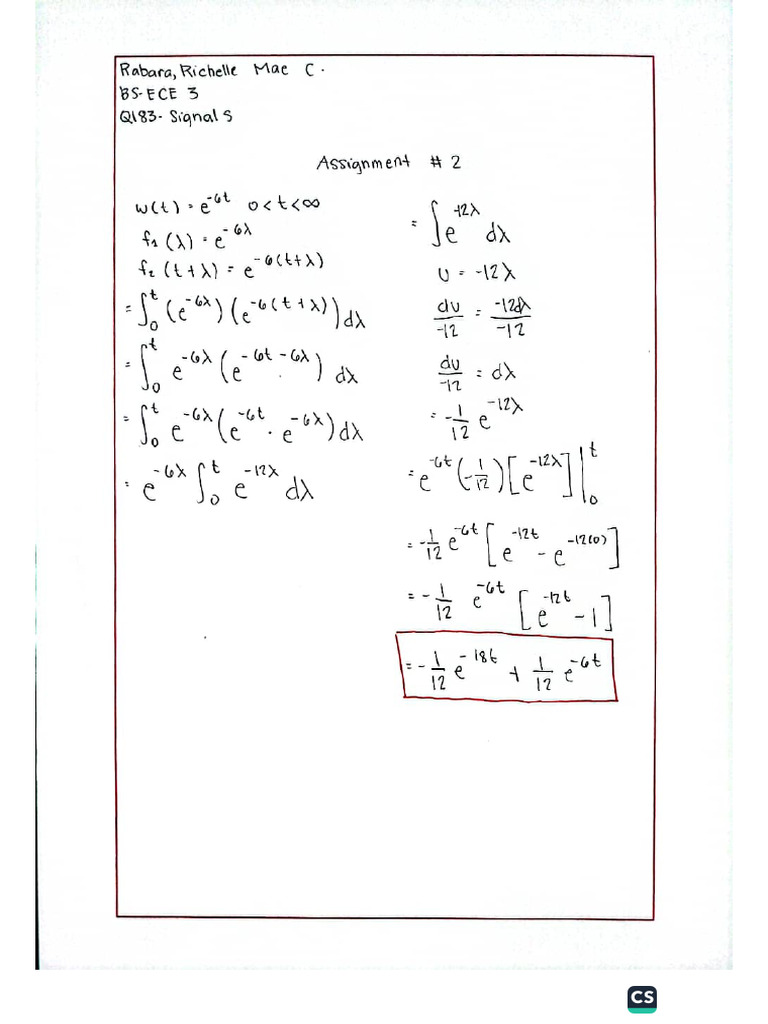 Rabara, Richelle Mae C.
BS-ECE 3
Q183- Signals
Assignment # 2
w(t) = e^-6t 0<t<∞
f₁(λ) = e^-6λ
f₂(t+λ) = e^-6(t+λ)
= ∫₀^t (e^-6λ)(e^-6(t+λ)) dλ
= ∫₀^t e^-6λ (e^-6t-6λ) dλ
= ∫₀^t e^-6λ (e^-6t · e^-6λ) dλ
= e^-6λ ∫₀^t e^-12λ dλ
= ∫ e^-12λ dλ
u = -12λ
du/-12 = -12dλ/-12
du/-12 = dλ
= -1/12 e^-12λ
= e^-6t (-1/12) [e^-12λ] |₀^t
= -1/12 e^-6t [e^-12t - e^-12(0)]
= -1/12 e^-6t [e^-12t - 1]
= -1/12 e^-18t + 1/12 e^-6t
CS